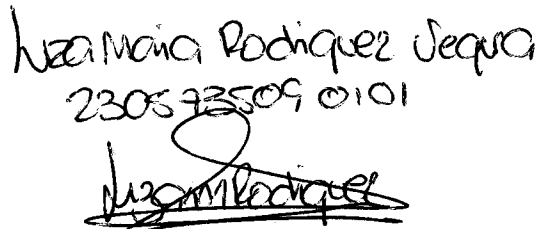 Luza Maria Rodriguez Segura
2305 73509 0101
Luza M Rodriguez